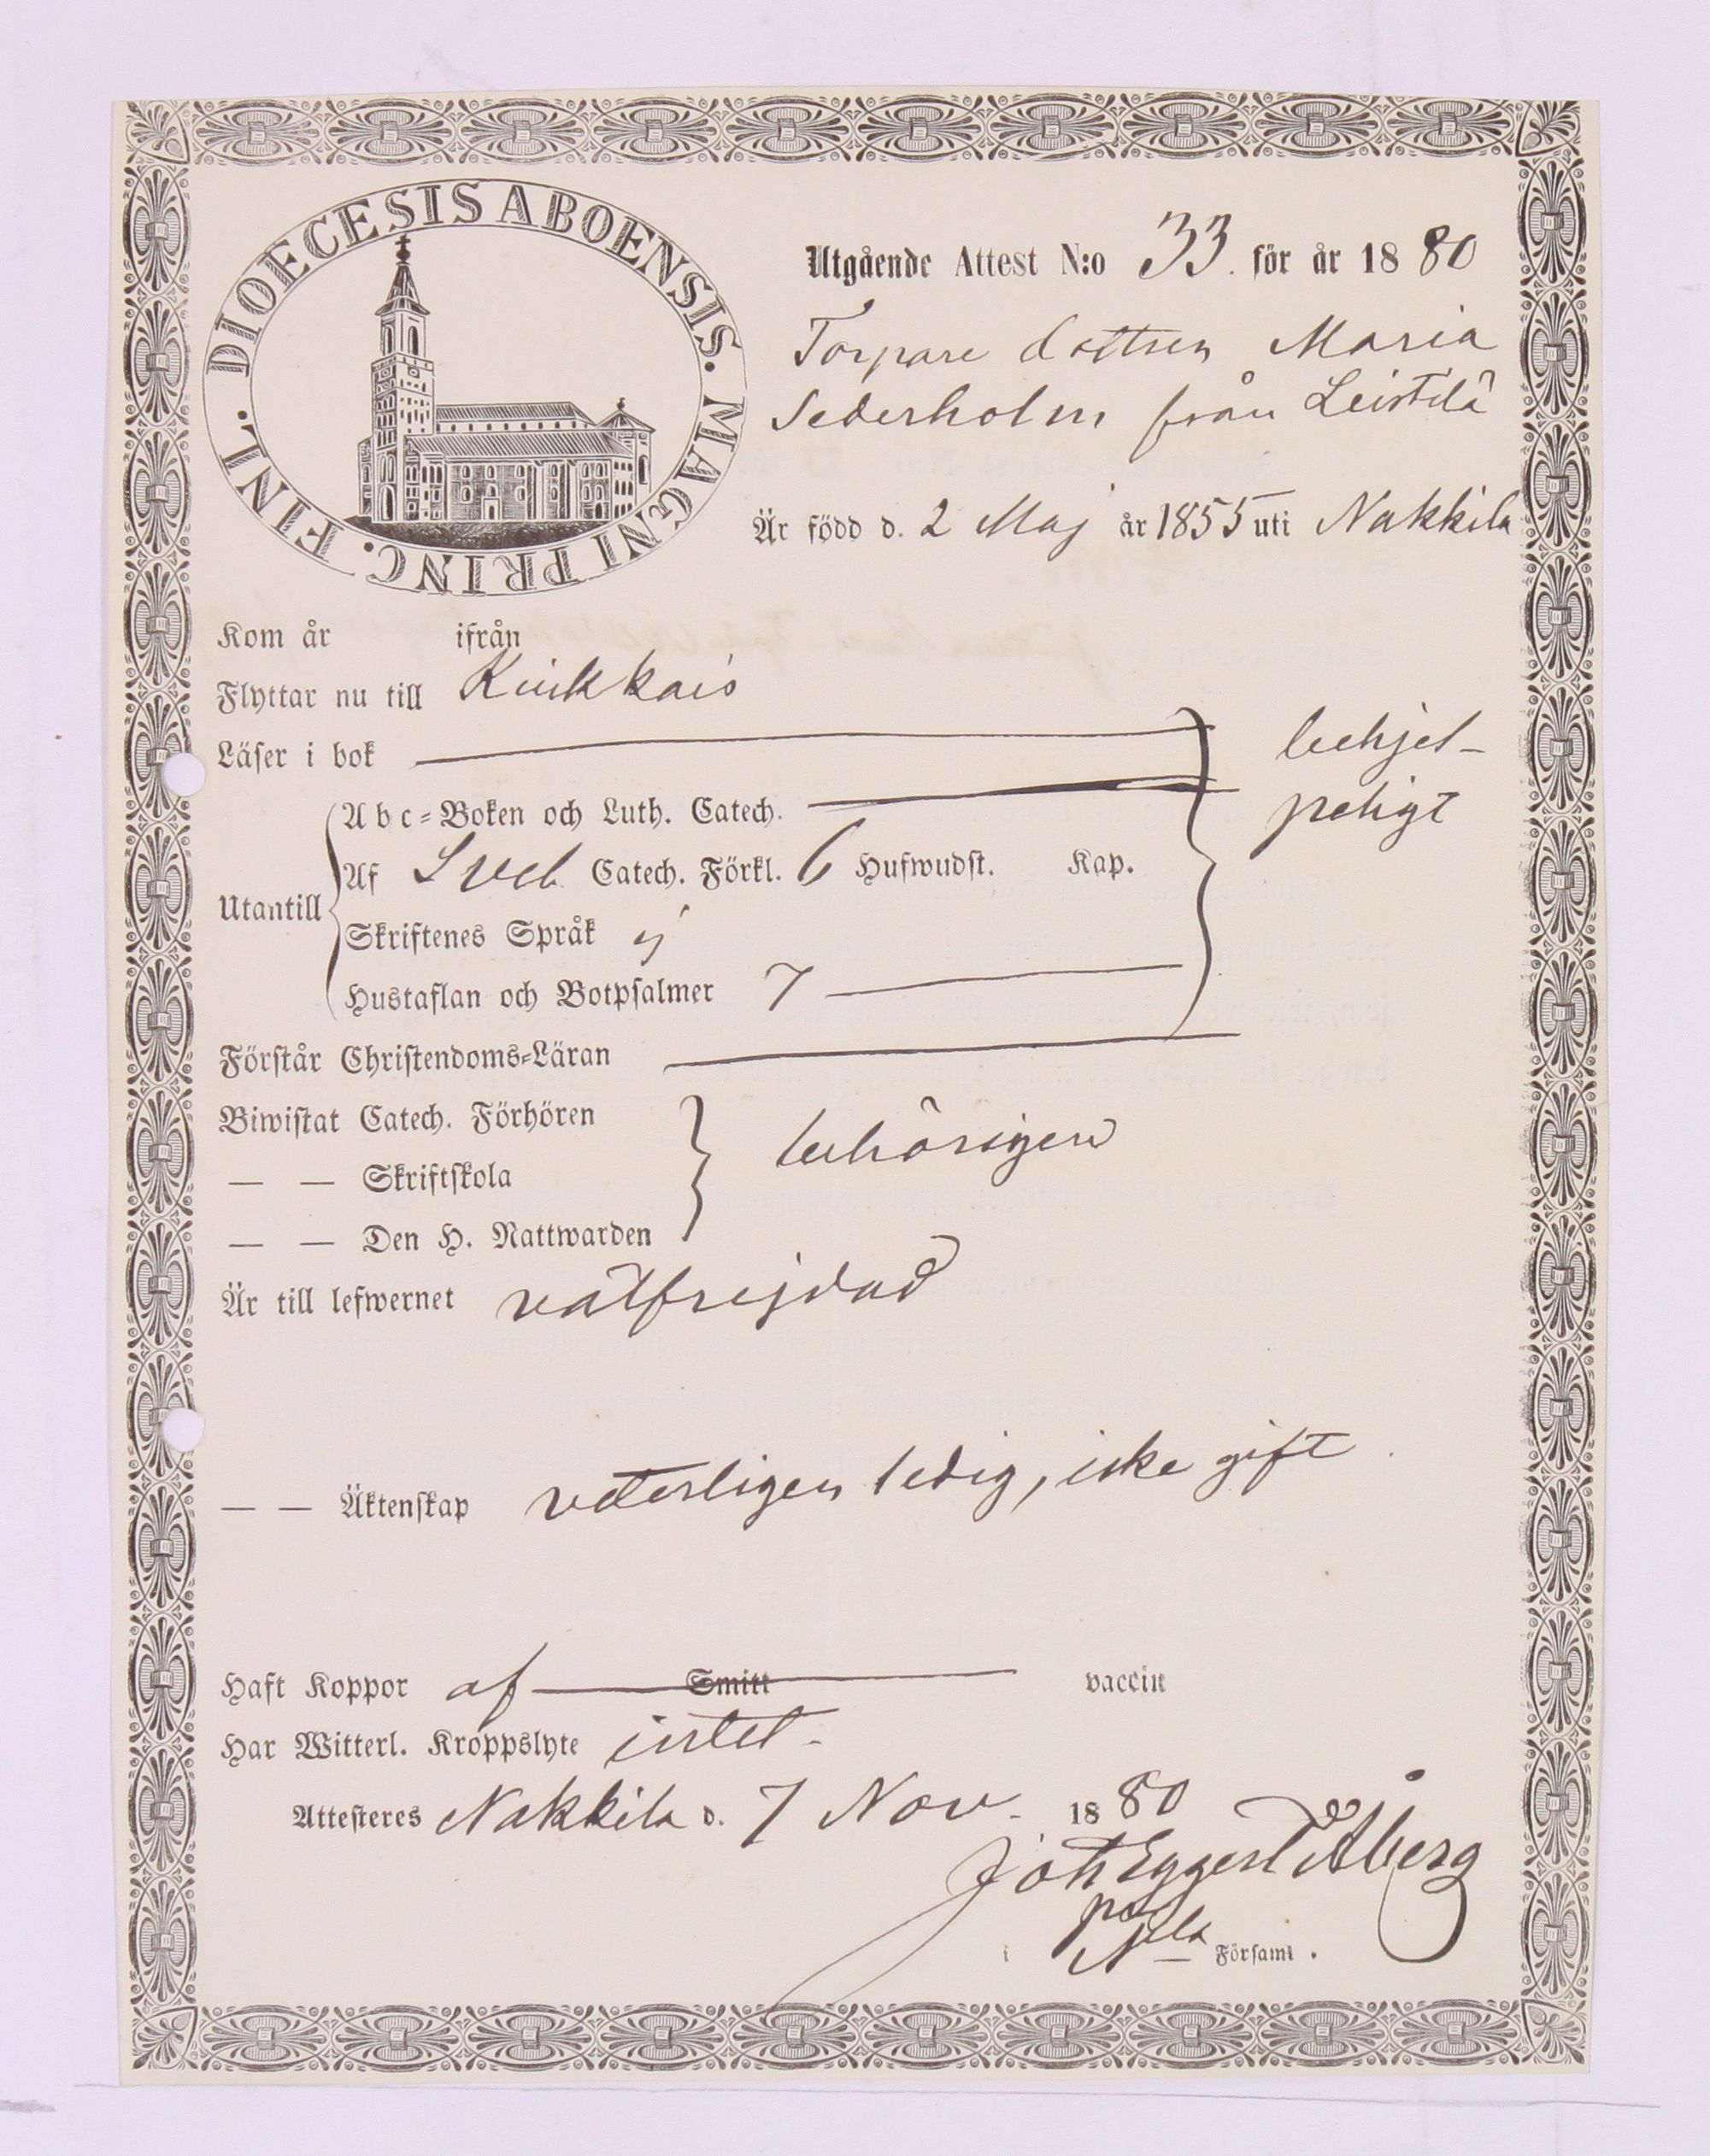 DIOECESIS ABOENSIS. MAGNI PRINC. FINL.
Utgående Attest N:o 33. för år 1880
Torpare dottren Maria
Sederholm från Leistilä
Är född d. 2 Maj år 1855 uti Nakkila
Kom år ifrån
Flyttar nu till Kiukkais
Läser i bok
behjel-
peligt
Abc-Boken och Luth. Catech.
Af Sveb. Catech. Förkl. 6 Hufwudst. Kap.
Utantill
Skriftenes Språk
Hustaflan och Botpsalmer 7
Förstår Christendoms-Läran
Biwistat Catech. Förhören
— — Skriftskola
behörigen
— — Den H. Nattwarden
Är till lefwernet välfrejdad
— — Äktenskap veterligen ledig, icke gift
Haft Koppor af Smitt vaccin
Har Witterl. Kroppslyte intet.
Attesteres Nakkila d. 7 Nov. 1880
Joh Eggert Åberg
i N:la Församl.